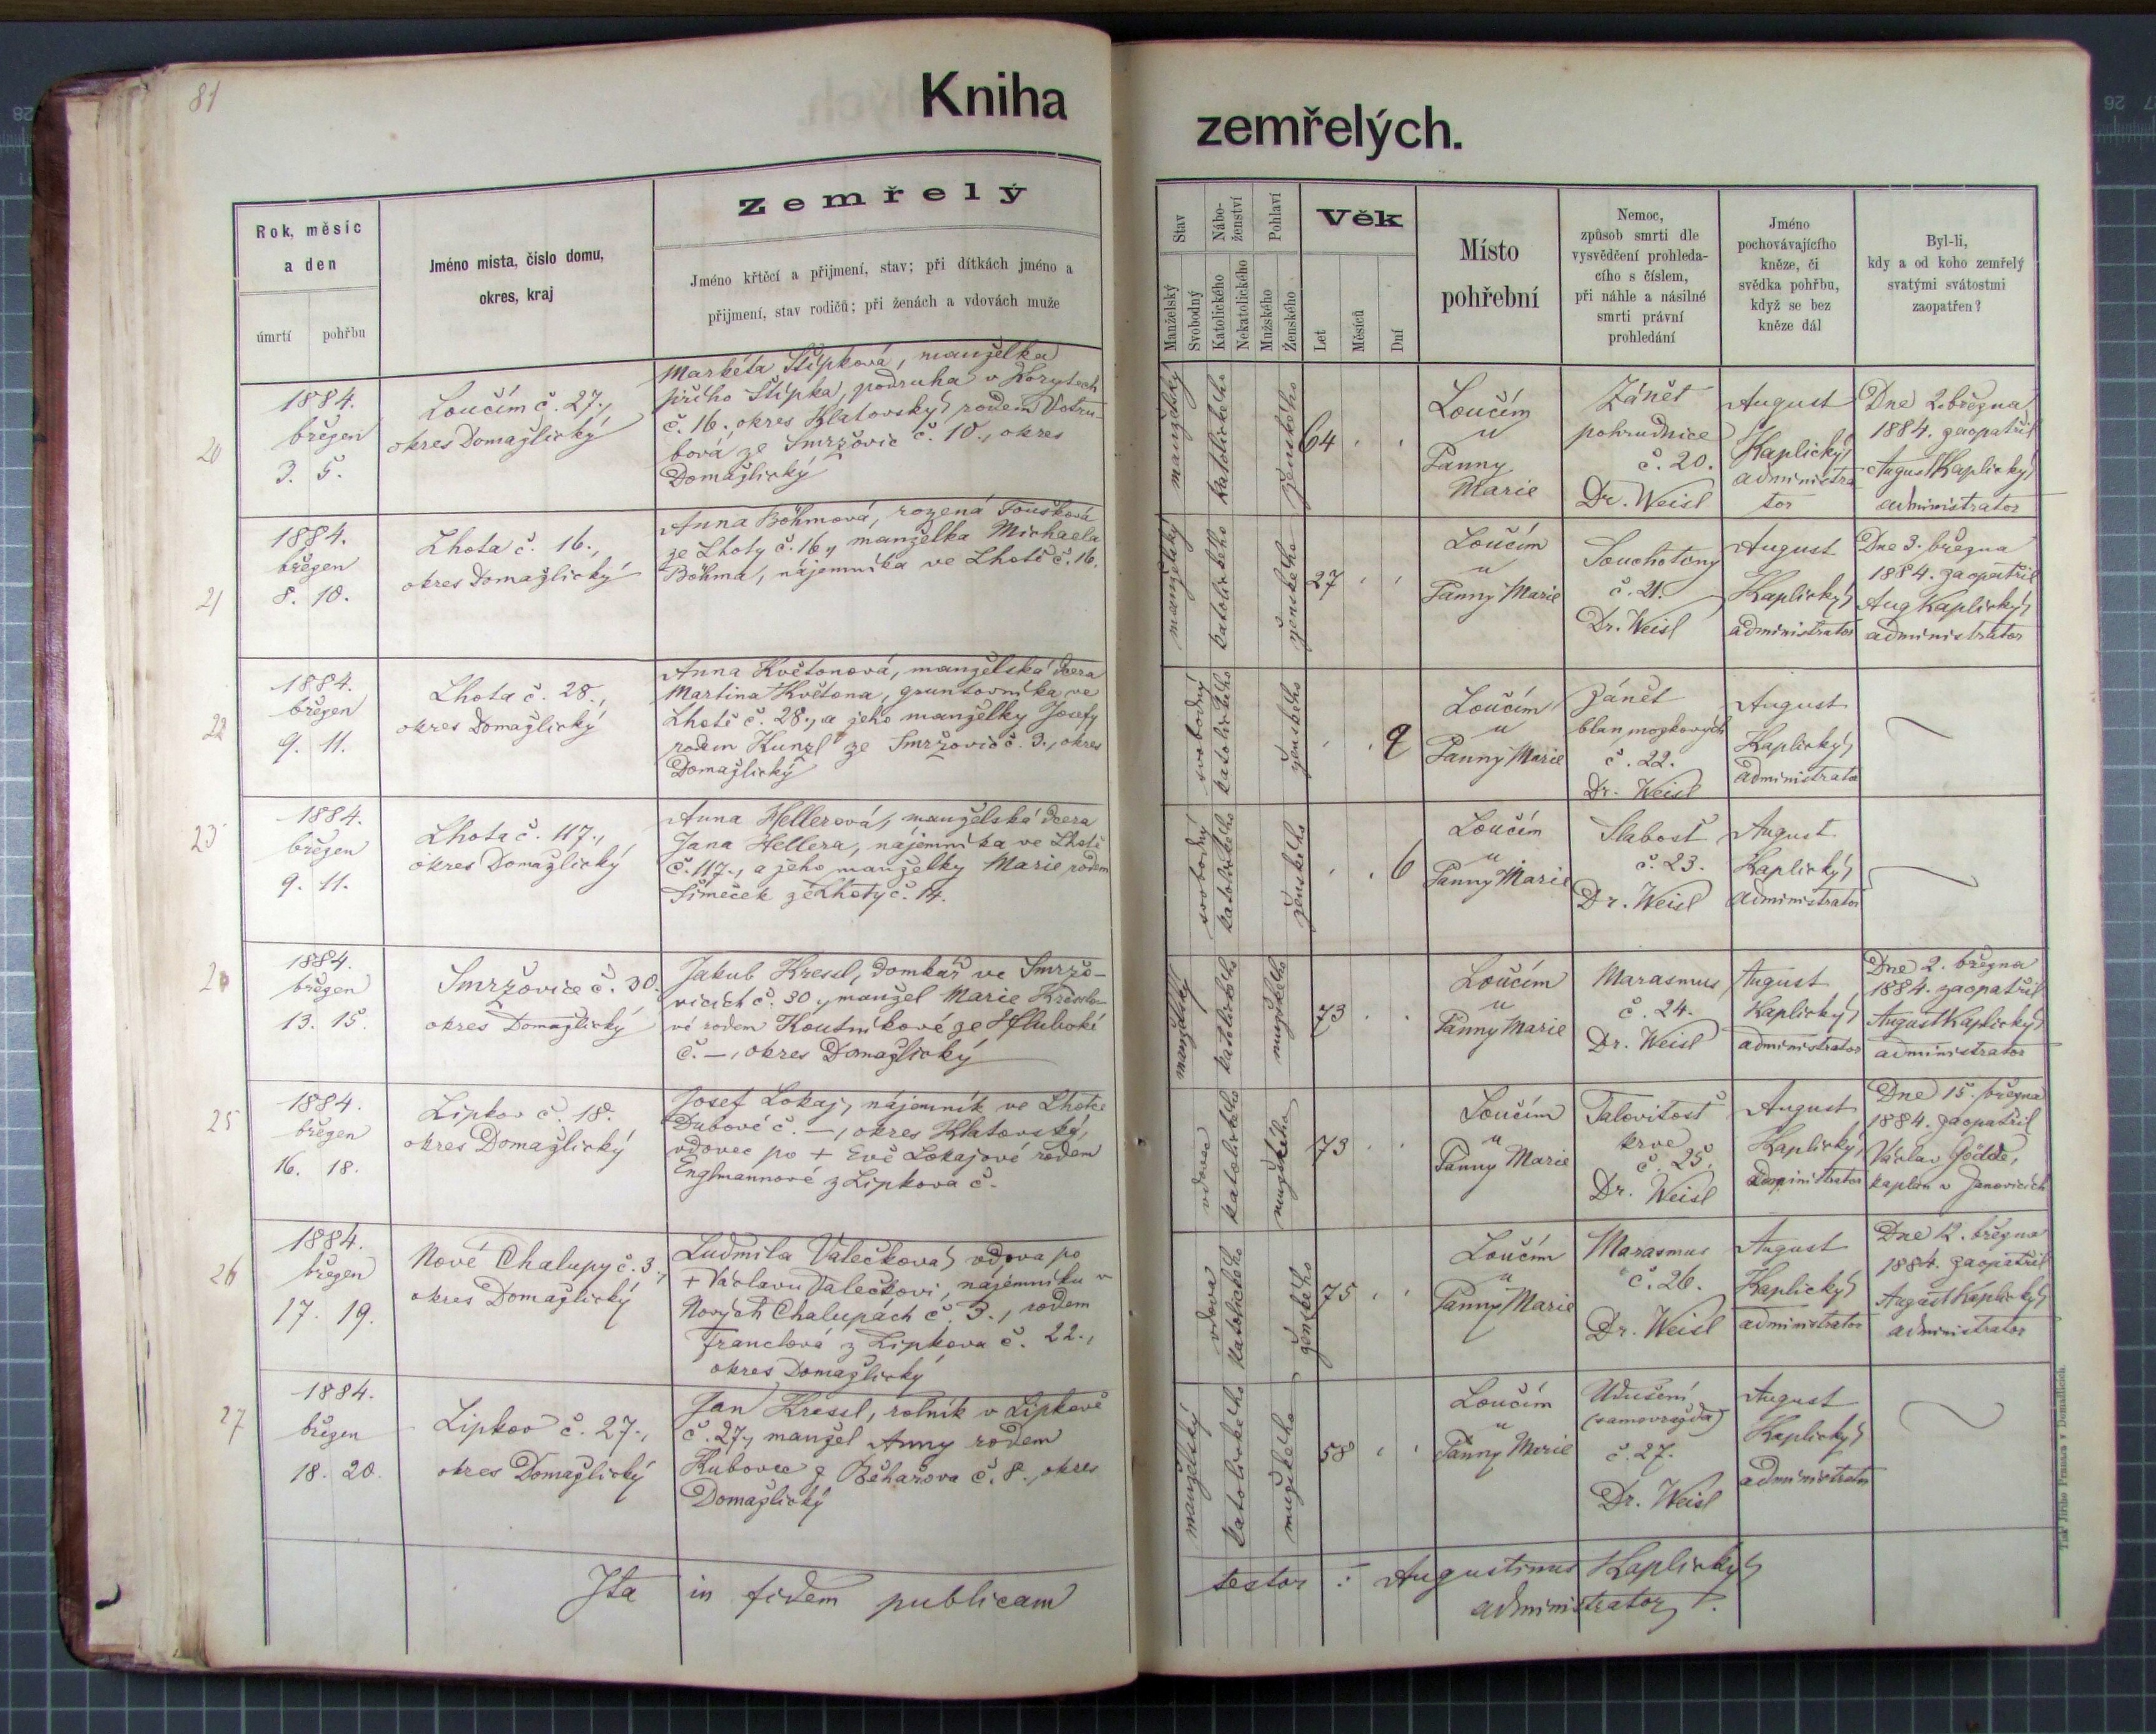 81
Kniha
zemřelých.
Rok, měsíc
a den
úmrtí pohřbu
Jméno mista, číslo domu,
okres, kraj
Zemřelý
Jméno křtěcí a přijmení, stav; při dítkách jméno a
přijmení, stav rodičů; při ženách a vdovách muže
Stav
Manželský
Svobodný
Nábo-
ženství
Katolického
Nekatolického
Pohlaví
Mužského
Ženského
Věk
Let
Měsíců
Dní
Místo
pohřební
Nemoc,
způsob smrti dle
vysvědčení prohleda-
cího s číslem,
při náhle a násilné
smrti právní
prohledání
Jméno
pochovávajícího
kněze, či
svědka pohřbu,
když se bez
kněze dál
Byl-li,
kdy a od koho zemřelý
svatými svátostmi
zaopatřen?
20
1884.
březen
3. 5.
Loučím č. 27.,
okres Domažlický
Markéta Štípková, manželka
Jiřího Štípka, podruha v Korytech
č. 16., okres Klatovský rodem Votru-
bová ze Smržovic č. 10., okres
Domažlický
manželský
katolického
ženského
64
Loučím
u
Panny
Marie
Zánět
pohrudnice
č. 20.
Dr. Weisl
August
Kaplický,
administra
tor
Dne 2. března
1884. zaopatřil
August Kaplický,
administrator
21
1884.
březen
8. 10.
Lhota č. 16.,
okres Domažlický
Anna Böhmová, rozená Toušková
ze Lhoty č. 16., manželka Michaela
Böhma, nájemníka ve Lhotě č. 16.
manželský
katolického
ženského
27
Loučím
u
Panny Marie
Souchotiny
č. 21.
Dr. Weisl
August
Kaplický,
administrator
Dne 3. března
1884. zaopatřil
Aug Kaplický,
administrator
22
1884.
březen
9. 11.
Lhota č. 28.,
okres Domažlický
Anna Květonová, manželská dcera
Martina Květona, gruntovníka ve
Lhotě č. 28., a jeho manželky Josefy
rodem Kunzl ze Smržovic č. 3., okres
Domažlický
svobodný
katolického
ženského
9
Loučím
u
Panny Marie
Zánět
blan mozkových
č. 22.
Dr. Weisl
August
Kaplický,
administrator
23
1884.
březen
9. 11.
Lhota č. 117.,
okres Domažlický
Anna Hellerová, manželská dcera
Jana Hellera, nájemníka ve Lhotě
č. 117., a jeho manželky Marie rodem
Šimeček ze Lhoty č. 14.
svobodný
katolického
ženského
6
Loučím
u
Panny Marie
Slabost
č. 23.
Dr. Weisl
August
Kaplický,
administrator
1884.
březen
13. 15.
Smržovice č. 30.
okres Domažlický
Jakub Kressl, domkář ve Smržo-
vicích č. 30., manžel Marie Kresslo-
vé rodem Koutníkové ze Hluboké
č. —, okres Domažlický
manželský
katolického
mužského
73
Loučím
u
Panny Marie
Marasmus
č. 24.
Dr. Weisl
August
Kaplický,
administrator
Dne 2. března
1884. zaopatřil
August Kaplický,
administrator
25
1884.
březen
16. 18.
Lipkov č. 18.
okres Domažlický
Josef Lokaj, nájemník ve Lhotce
Dubové č. —, okres Klatovský,
vdovec po + Evě Lokajové rodem
Englmannové z Lipkova č.
vdovec
katolického
mužského
73
Loučím
u
Panny Marie
Talovitost
krve
č. 25.
Dr. Weisl
August
Kaplický,
administrator
Dne 15. března
1884. zaopatřil
Václav Jödde,
kaplan v Janovicích
26
1884.
březen
17. 19.
Nové Chalupy č. 3.,
okres Domažlický
Ludmila Valečková, vdova po
+ Václavu Valečkovi, nájemníku v
Nových Chalupách č. 3., rodem
Franclová z Lipkova č. 22.,
okres Domažlický
vdova
katolického
ženského
75
Loučím
u
Panny Marie
Marasmus
č. 26.
Dr. Weisl
August
Kaplický,
administrator
Dne 12. března
1884. zaopatřil
August Kaplický,
administrator
27
1884.
březen
18. 20.
Lipkov č. 27.,
okres Domažlický
Jan Kressl, rolník v Lipkově
č. 27., manžel Anny rodem
Kubovce z Běhařova č. 8., okres
Domažlický
manželský
katolického
mužského
58
Loučím
u
Panny Marie
Udušení
(samovražda)
č. 27.
Dr. Weisl
August
Kaplický,
administrator
Ita in fidem publicam
testor : Augustinus Kaplický,
administrator